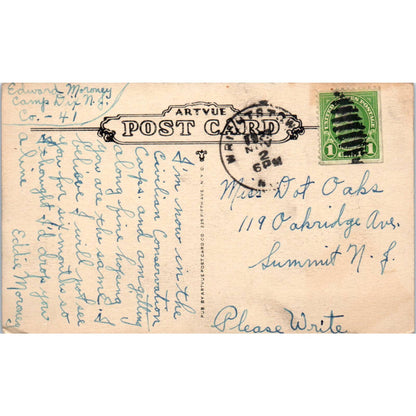 Edward Moroney
Camp Dix N.J.
Co. - 41
ARTVUE
POST CARD
WRIGHTSTOWN
2
6 PM
N.J.
UNITED STATES POSTAGE
1 1
I'm now in the
Civilian Conservation
Corps. and am getting
along fine hoping
you are to the same. I
believe I will not see
you for six months so
I thought I'd drop you
a line
Eddie Moroney
PUB. BY ARTVUE POST CARD CO. 225 FIFTH AVE., N.Y.C.
Miss Dot Oaks
119 Oakridge Ave.
Summit N.J.
Please Write